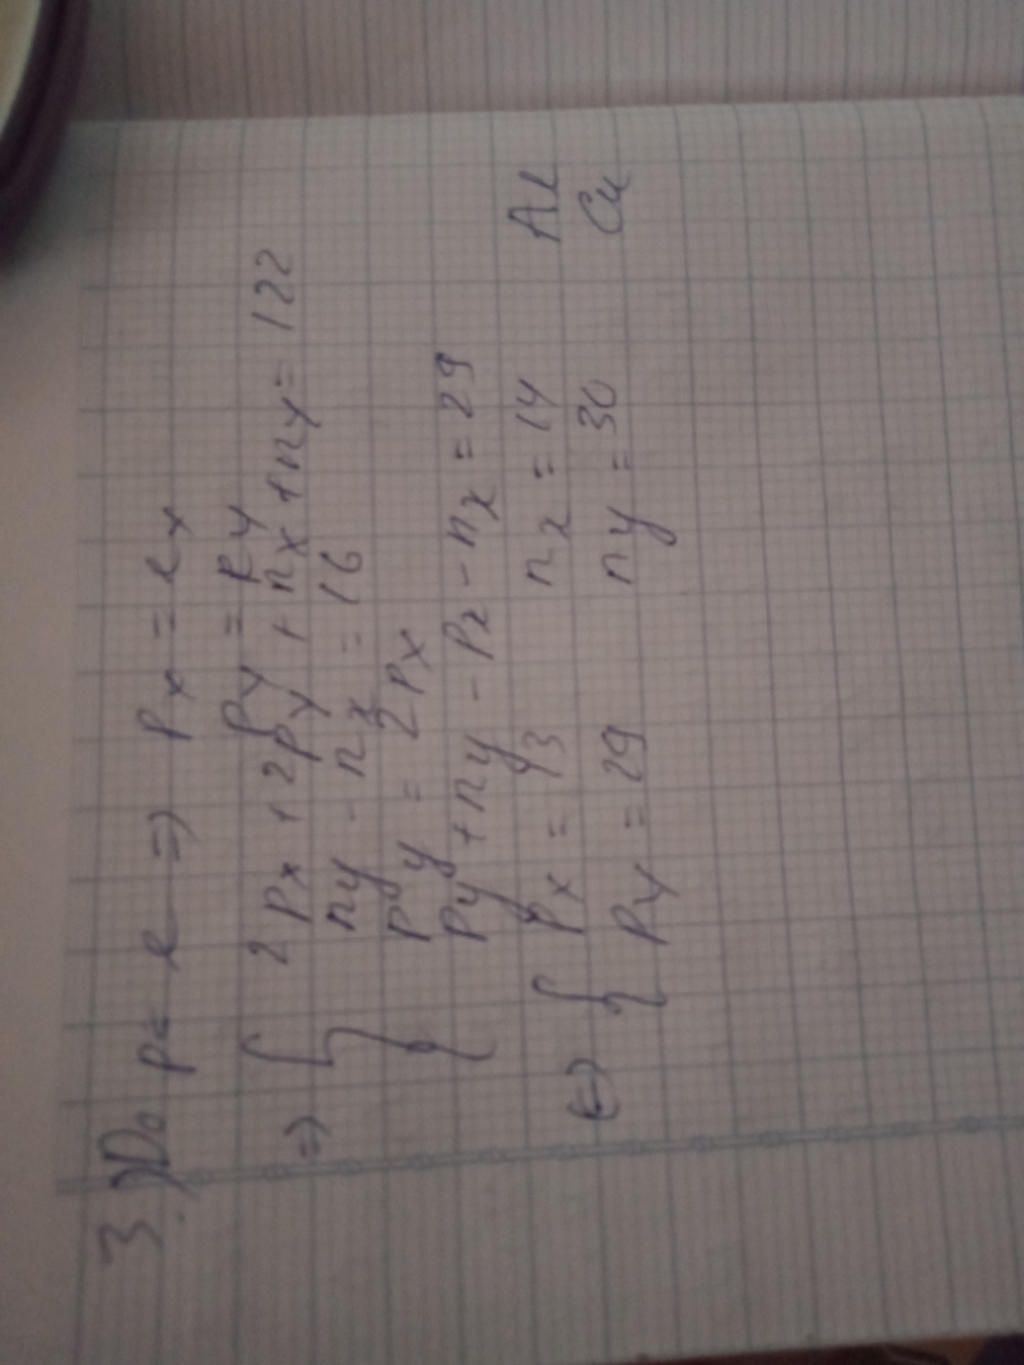 3.) Do p = e => Px = ex
Py = ey
=> { 2Px + 2Py + nx + ny = 122
ny - nx = 16
Py = 2Px
Py + ny - Px - nx = 29
<=> { Px = 13 nx = 14 Al
Py = 29 ny = 30 Cu